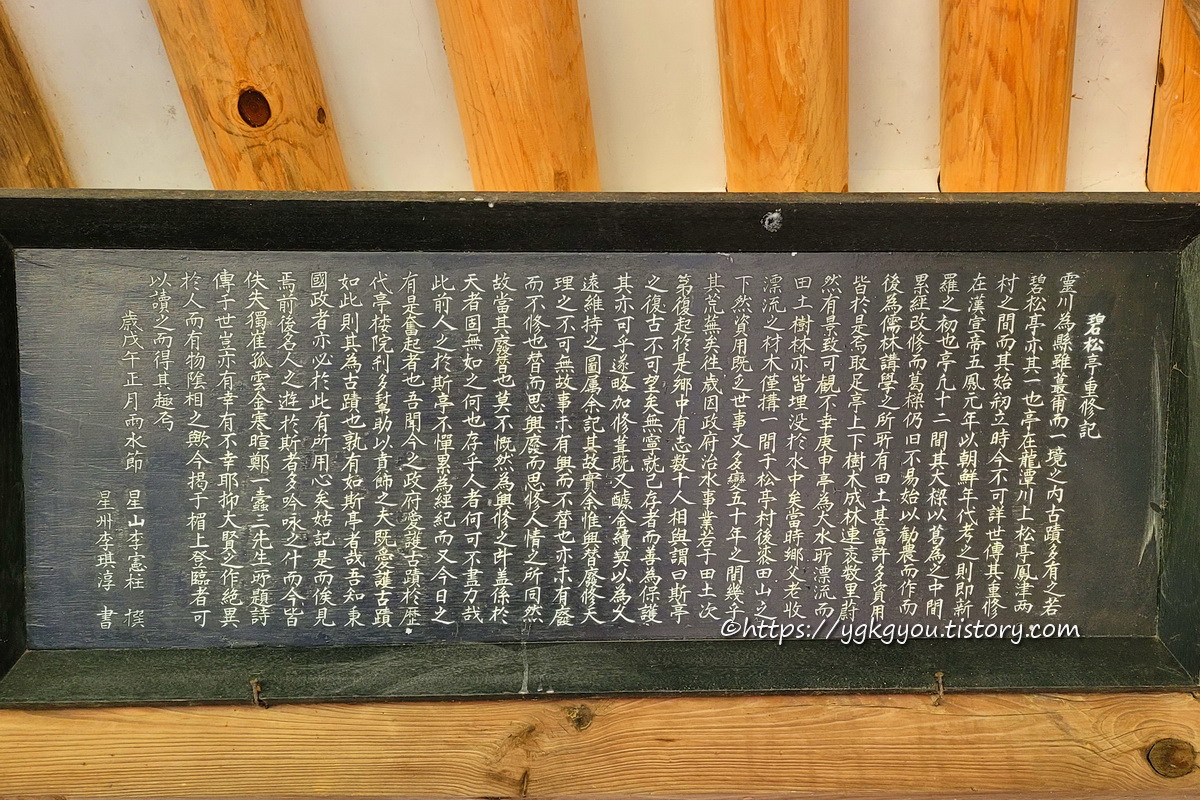 碧松亭重修記
靈川爲縣雖蕞甭而一境之內古蹟多有之若
碧松亭亦其一也亭在龍潭川上松亭鳳津两
村之間而其始刱立時今不可詳世傳其重修
在漢宣帝五鳳元年以朝鮮年代考之則即新
羅之初也亭凡十二間其大樑以葛爲之中間
累經改修而葛樑仍旧不易始以勸農而作而
後爲儒林講學之所所有田土甚富許多資用
皆於是焉取足亭上下樹木成林連袤数里蔚
然有景致可觀不幸庚申亭爲大水所漂流而
田土樹林亦皆埋没於水中矣當時鄉父老收
漂流之材木僅搆一間于松亭村後桼田山之
下然資用既乏世事又多變五十年之間幾乎
其荒無矣往歲因政府治水事業若干田土次
第復起於是鄉中有志数十人相與謂曰斯亭
之復古不可望矣無寧就已存者而善爲保護
其亦可乎遂略加修葺旣又醵金續契以爲久
遠維持之圖属余記其故實余惟興替廢修天
理之不可無故事未有興而不替也亦未有廢
而不修也替而思興廢而思修人情之所同然
故當其廢替也莫不慨然爲興修之計盖係於
天者固無如之何也存乎人者何可不書力哉
此前人之於斯亭不憚累爲經紀而又今日之
有是奮起者也吾聞今之政府愛護古蹟於歷
代亭楼院刹多幇助以賁飾之夫旣愛護古蹟
如此則其爲古蹟也孰有如斯亭者哉吾知東
國政者亦必於此有所用心矣姑記是而俟見
焉前後名人之遊於斯者多吟咏之什而今皆
佚失獨崔孤雲金寒暄鄭一蠹三先生所題詩
傳于世豈亦有幸有不幸耶抑大賢之作絶異
於人而有物陰相之歟今揭于楣上登臨者可
以讀之而得其趣焉
歲戊午正月雨水節 星山李憲柱 撰
星州李琪淳 書
©https://ygkgyou.tistory.com